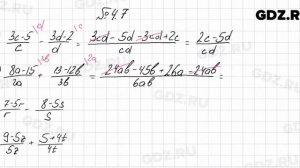 GDZ.RU
№ 47
3c-5/c - 3d-2/d = 3cd-5d-3cd+2c/cd = 2c-5d/cd
8a-15/2a + 13-12b/3b = 24ab-45b+26a-24ab/6ab
7-5r/r - 8-5s/s
9-5z/5z + 5+4t/4t
GDZ.RU